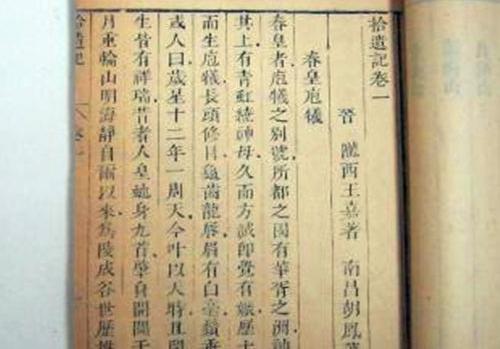 拾遺記卷一
晉 隴西王嘉著 南昌胡鳳
春皇庖犧
春皇者庖犧之別號所都之國有華胥之洲
其上有青虹繞神母久而方滅即覺有娠歷十
而生庖犧長頭修目龜齒龍唇眉有白毫鬚垂
或人曰歲星十二年一周天今叶以天時且聞
生皆有祥瑞昔者人皇蛇身九首肇自開闢于
月重輪山明海靜自爾以來為陵成谷世歷推
拾遺記